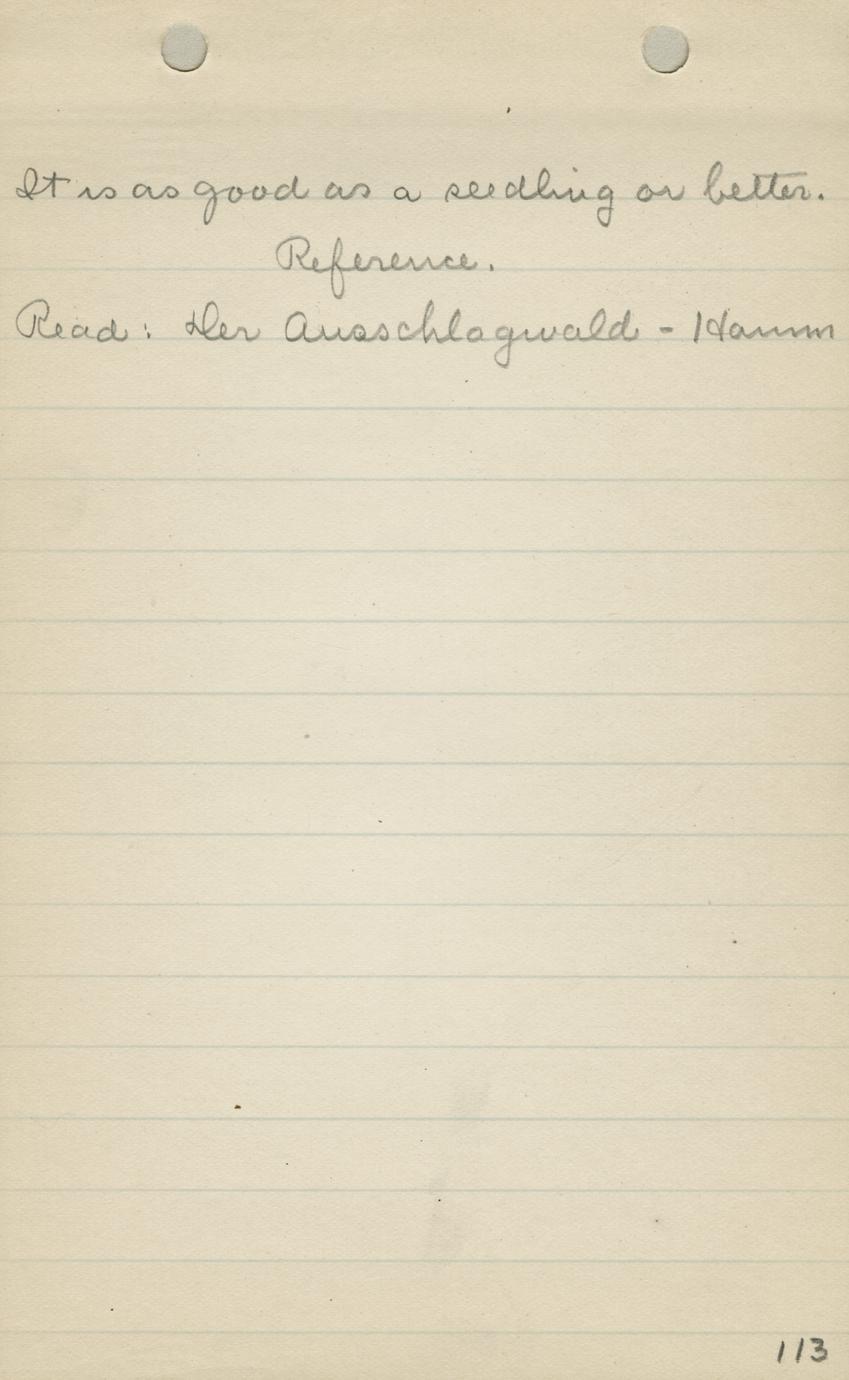 It is as good as a seedling or better.
Reference.
Read: Der Ausschlagwald - Hamm
113